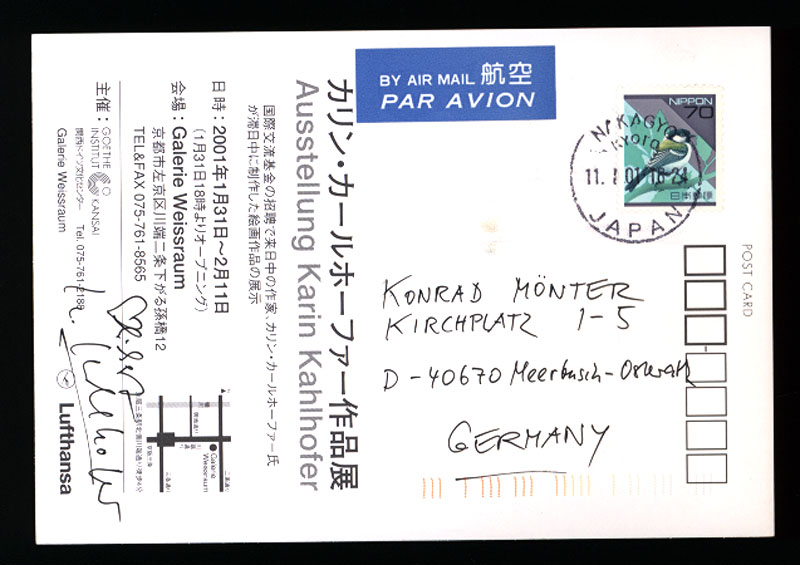 カリン・カールホーファー作品展
Ausstellung Karin Kahlhofer
国際交流基金の招聘で来日中の作家、カリン・カールホーファー氏
が滞日中に制作した絵画作品の展示
日時：2001年1月31日〜2月11日
（1月31日18時よりオープニング）
会場：Galerie Weissraum
京都市左京区川端二条下がる孫橋12
TEL&FAX 075-761-8565
主催：
GOETHE
INSTITUT
KANSAI
関西ドイツ文化センター Tel. 075-761-2188
Galerie Weissraum
Lufthansa
Galerie
Weissraum
BY AIR MAIL 航空
PAR AVION
NIPPON
70
日本郵便
NAKAGYO
KYOTO
JAPAN
POST CARD
KONRAD MÖNTER
KIRCHPLATZ 1-5
D-40670 Meerbusch-Osterath
GERMANY